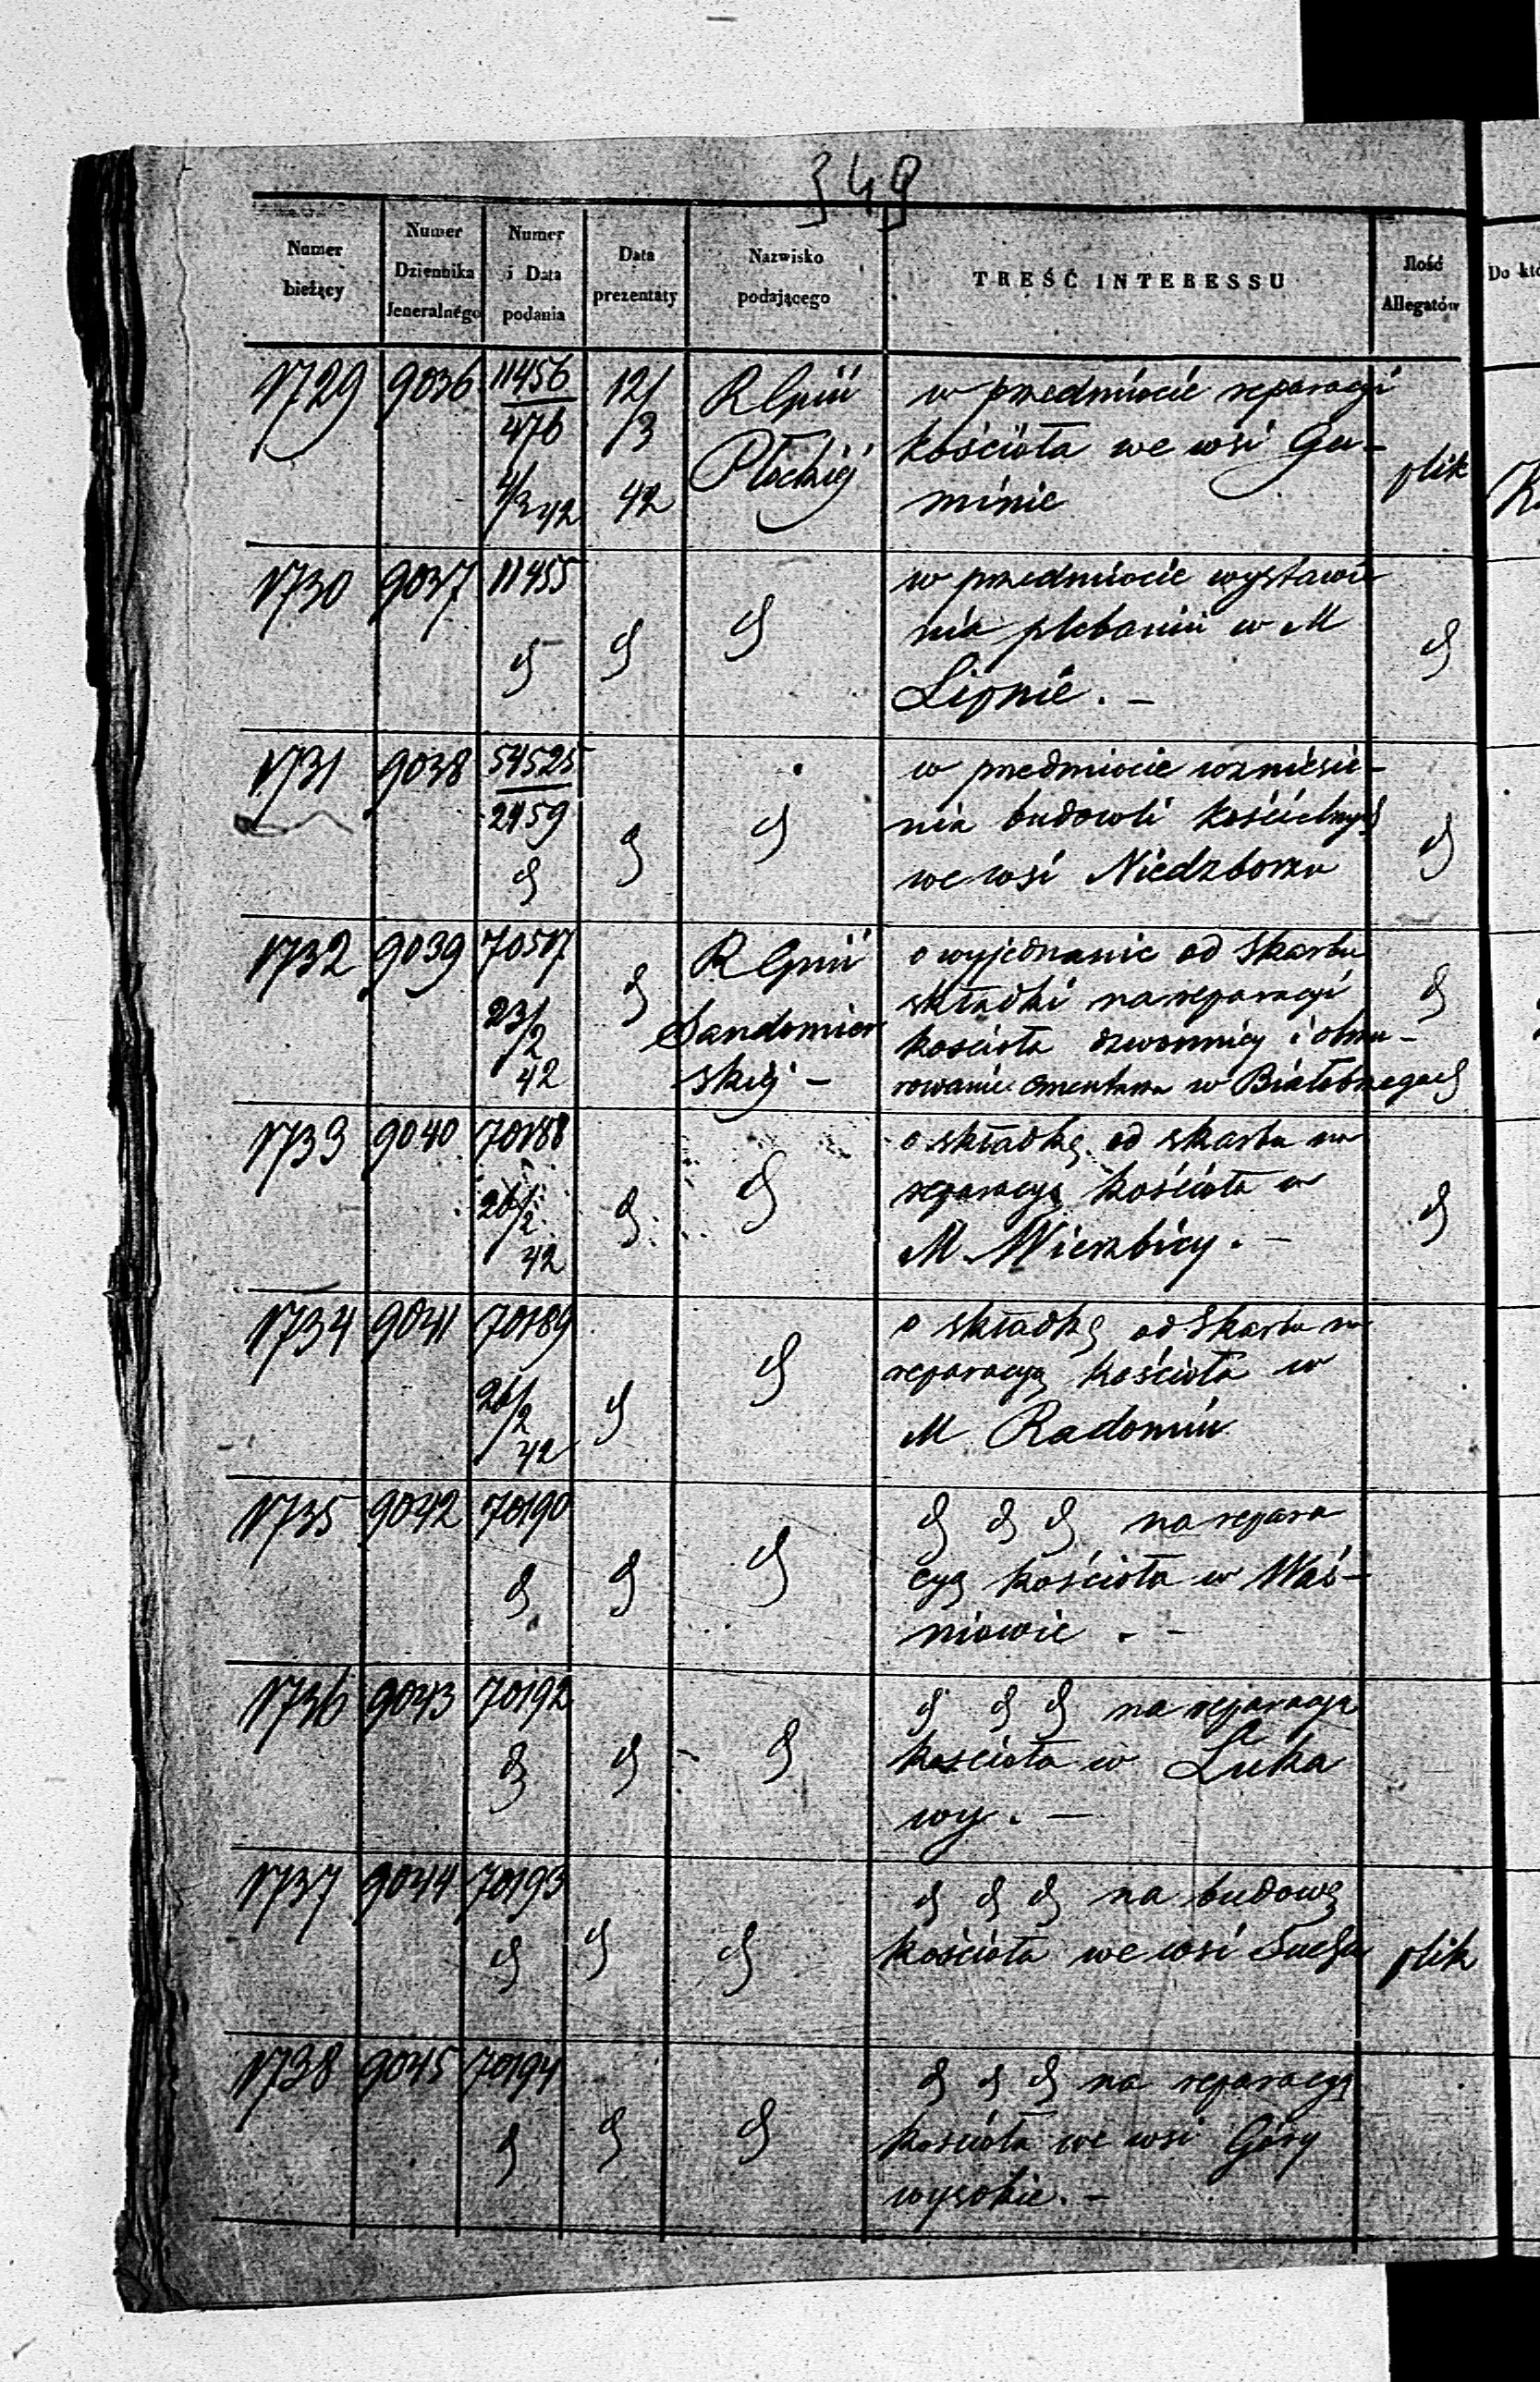 349
Numer bieżący | Numer Dziennika Jeneralnego | Numer i Data podania | Data prezentaty | Nazwisko podającego | TREŚĆ INTERESSU | Ilość Allegatów | Do któ
1729 | 9036 | 11456 / 476 4/3 42 | 12/3 42 | R Gnii Płockiéj | w przedmiocie reparacyi
kościoła we wsi Gu-
minie | plik
1730 | 9037 | 11455 d | d | d | w przedmiocie wystawie
nia plebanii w M
Lipnie . – | d
1731 | 9038 | 54525 / 2959 d | d | d | w przedmiocie wzniesie-
nia budowli kościelnych
we wsi Niedzborzu | d
1732 | 9039 | 70517 23/2 42 | d | R Gnii Sandomier skiéj – | o wyjednanie od Skarbu
składki na reparacyi
kościoła dzwonnicy i obmu-
rowanie cmentarza w Białobrzegach | d
1733 | 9040 | 70188 26/2 42 | d | d | o składkę od skarbu na
reparacyą kościoła w
M. Wierzbicy . – | d
1734 | 9041 | 70189 26/2 42 | d | d | o składkę od Skarbu na
reparacyą kościoła w
M Radomiu
1735 | 9042 | 70190 d | d | d | d d d na repara
cyą kościoła w Waś-
niowie . –
1736 | 9043 | 70192 d | d | d | d d d na reparacyą
kościoła w Łuka
wy . –
1737 | 9044 | 70193 d | d | d | d d d na budowę
kościoła we wsi | plik
1738 | 9045 | 70194 d | d | d | d d d na reparacyą
kościoła we wsi Góry
wysokie. –